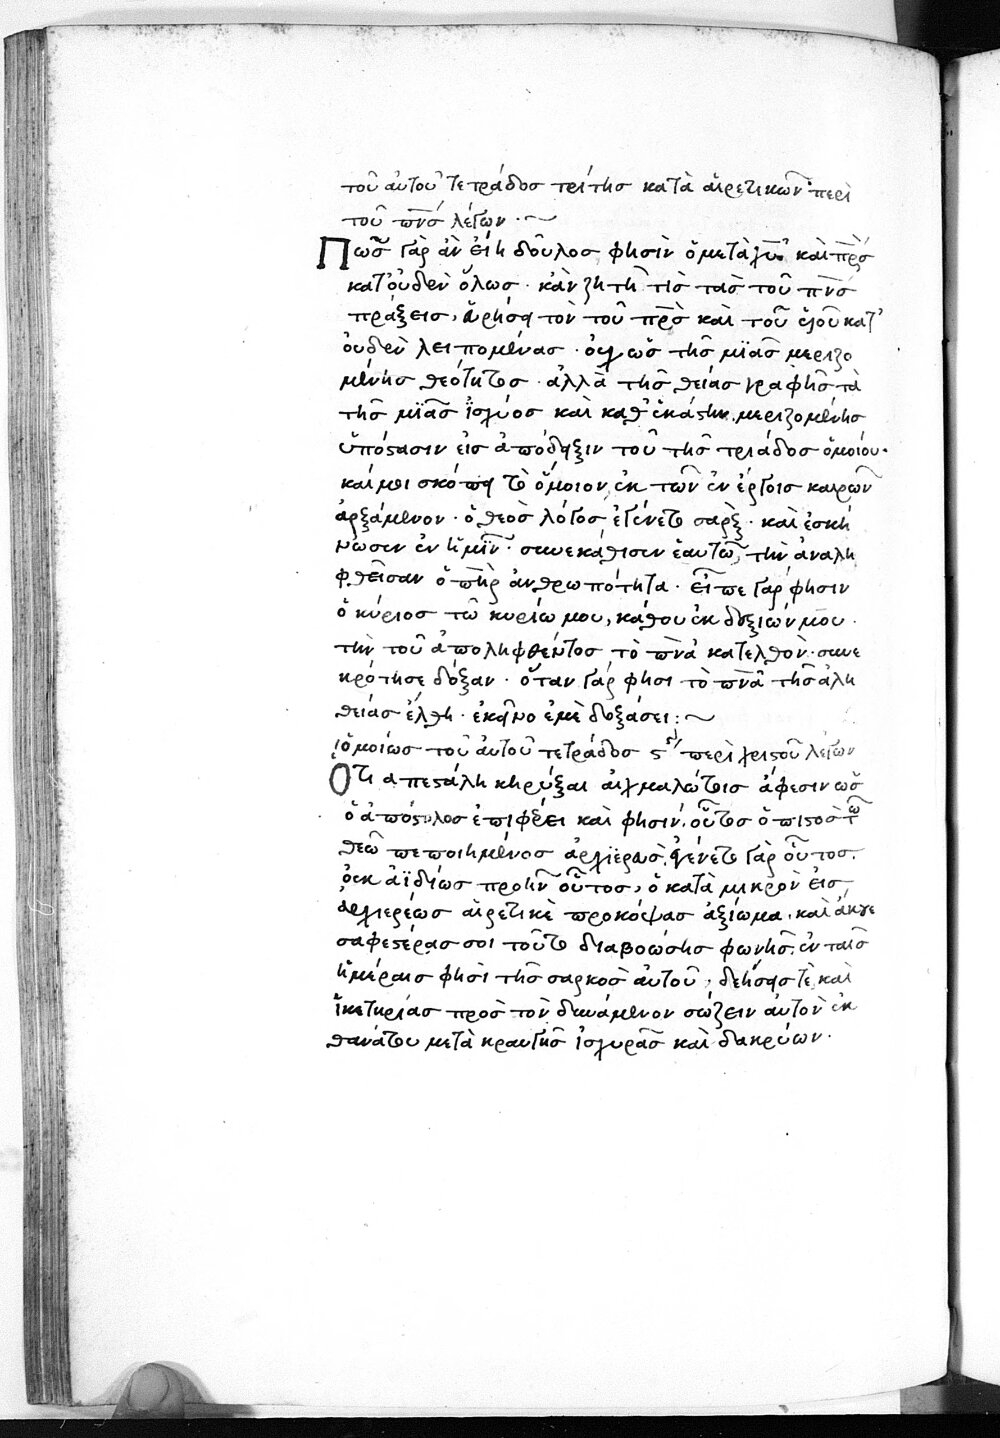 τοῦ αὐτοῦ τετράδος τρίτης κατὰ αἱρετικῶν· περὶ
τοῦ πνς λέγων ·~
Πῶς γὰρ ἂν εἴη δοῦλος φησὶν ὁ μετὰ χυ καὶ πρς
κατ' οὐδὲν ὅλως · κἂν ζητῆ τὶς τὰς τοῦ πνς
πράξεις, εὑρήσει τὸν τοῦ πρς καὶ τοῦ υἱοῦ κατ'
οὐδὲν λειπομένας · οὐχ ὡς τῆς μϊᾶς μεριζο
μένης θεότητος · ἀλλὰ τῆς θείας γραφῆς τὰ
τῆς μϊᾶς ἰσχύος καὶ καθ' ἑκάστην μεριζομένης
ὑπόστασιν εἰς ἀπόδειξιν τοῦ τῆς τριάδος ὁμοίου·
καί μοι σκόπει τὸ ὅμοιον ἐκ τῶν ἐν ἔργοις καιρῶν
ἀρξάμενον · ὁ θεὸς λόγος ἐγένετο σὰρξ · καὶ ἐσκή
νωσεν ἐν ἡμῖν · συνεκάθισεν ἑαυτῶ, τὴν ἀναλη
φθεῖσαν ὁ πηρ ἀνθρωπότητα · εἶπε γὰρ φησιν
ὁ κύριος τῶ κυρίω μου, κάθου ἐκ δεξιῶν μου ·
τὴν τοῦ ἀποληφθέντος τὸ πνα κατελθὸν · συνε
κρότησε δόξαν · ὅταν γάρ φησι τὸ πνα τῆς ἀλη
θείας ἔλθη · ἐκεῖνο ἐμὲ δοξάσει :~
ὁμοίως τοῦ αὐτοῦ τετράδος ϛ περὶ χριστοῦ λέγων
Ὅτι ἀπεστάλη κηρύξαι αἰχμαλώτοις ἄφεσιν ὡς
ὁ ἀπόστολος ἐπιφέρει καὶ φησιν, οὗτος ὁ πιστὸς τῶ
θεῶ πεποιημένος ἀρχϊερεὺς, ἐγένετο γὰρ οὗτος.
οὐκ ἀϊδίως προῆν οὗτος, ὁ κατὰ μικρὸν εἰς
ἀρχιερέως αἱρετικὲ προκόψας ἀξίωμα, καὶ ἄκουε
σαφεστέρας σοι τοῦτο διαβοώσης φωνῆς, ἐν ταῖς
ἡμέραις φησὶ τῆς σαρκὸς αὐτοῦ, δεήσεις τὲ καὶ
ἱκετηρίας πρὸς τὸν δυνάμενον σώζειν αὐτὸν ἐκ
θανάτου μετὰ κραυγῆς ἰσχυρᾶς καὶ δακρύων ·